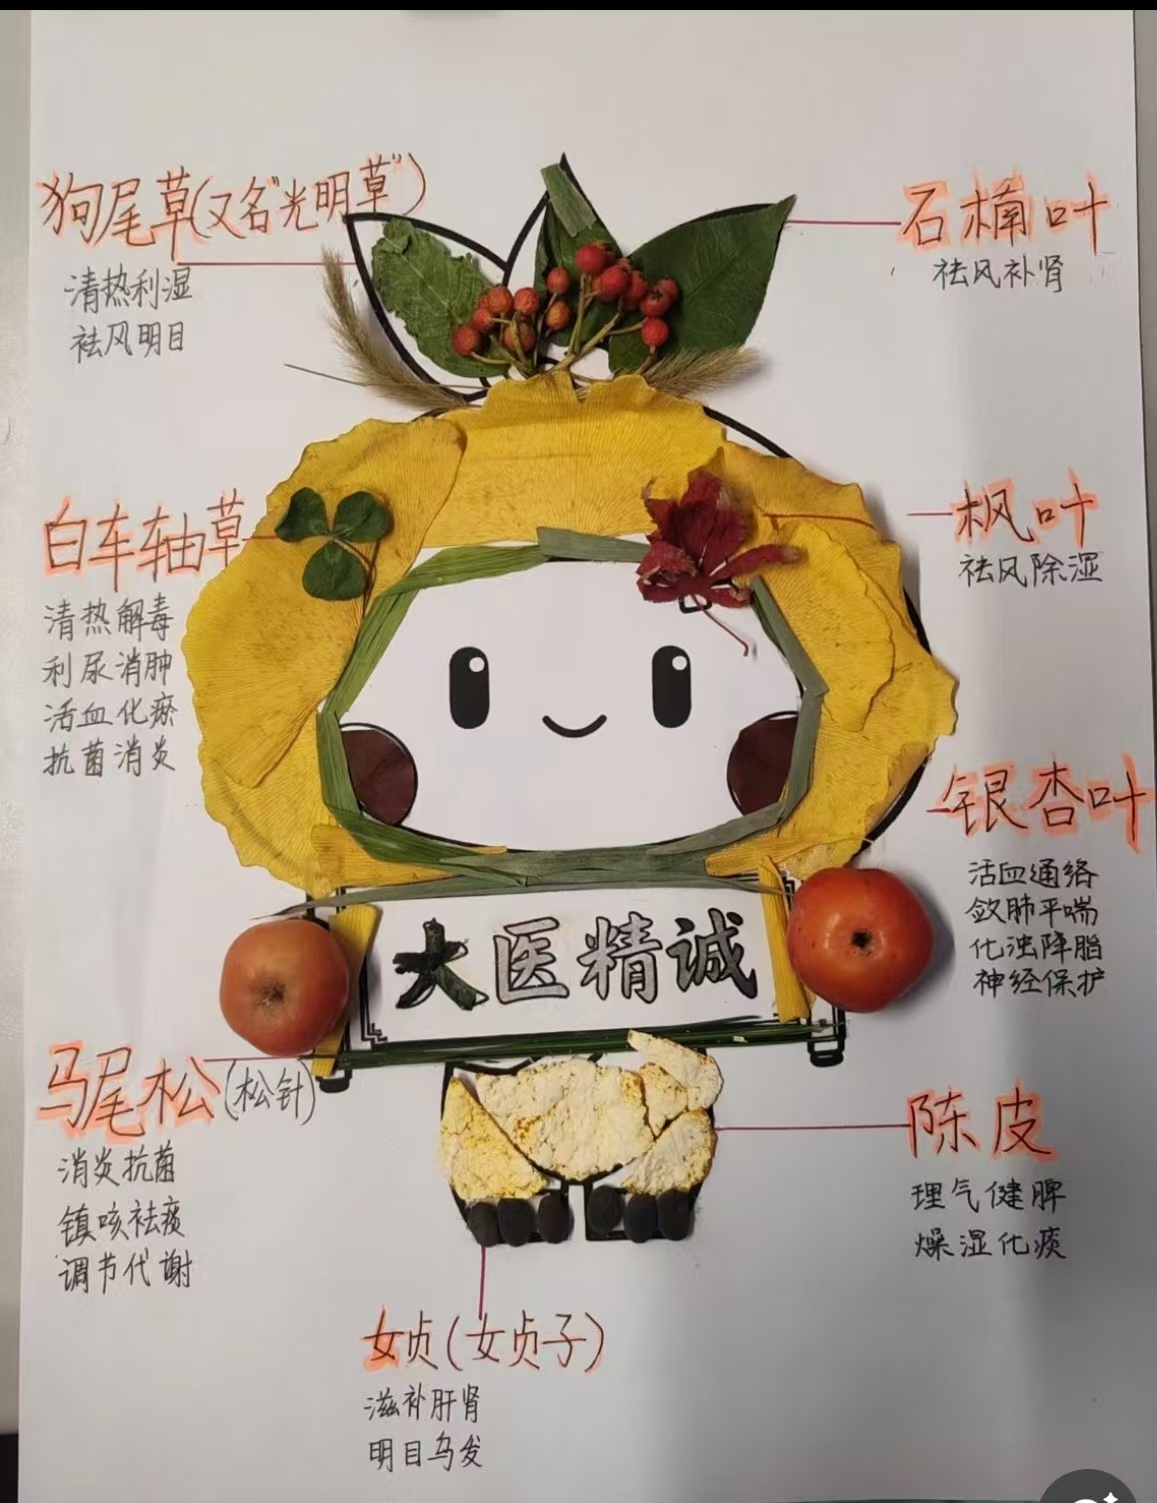 狗尾草(又名"光明草")
清热利湿
祛风明目
石楠叶
祛风补肾
白车轴草
清热解毒
利尿消肿
活血化瘀
抗菌消炎
枫叶
祛风除湿
银杏叶
活血通络
敛肺平喘
化浊降脂
神经保护
大医精诚
马尾松(松针)
消炎抗菌
镇咳祛痰
调节代谢
陈皮
理气健脾
燥湿化痰
女贞(女贞子)
滋补肝肾
明目乌发